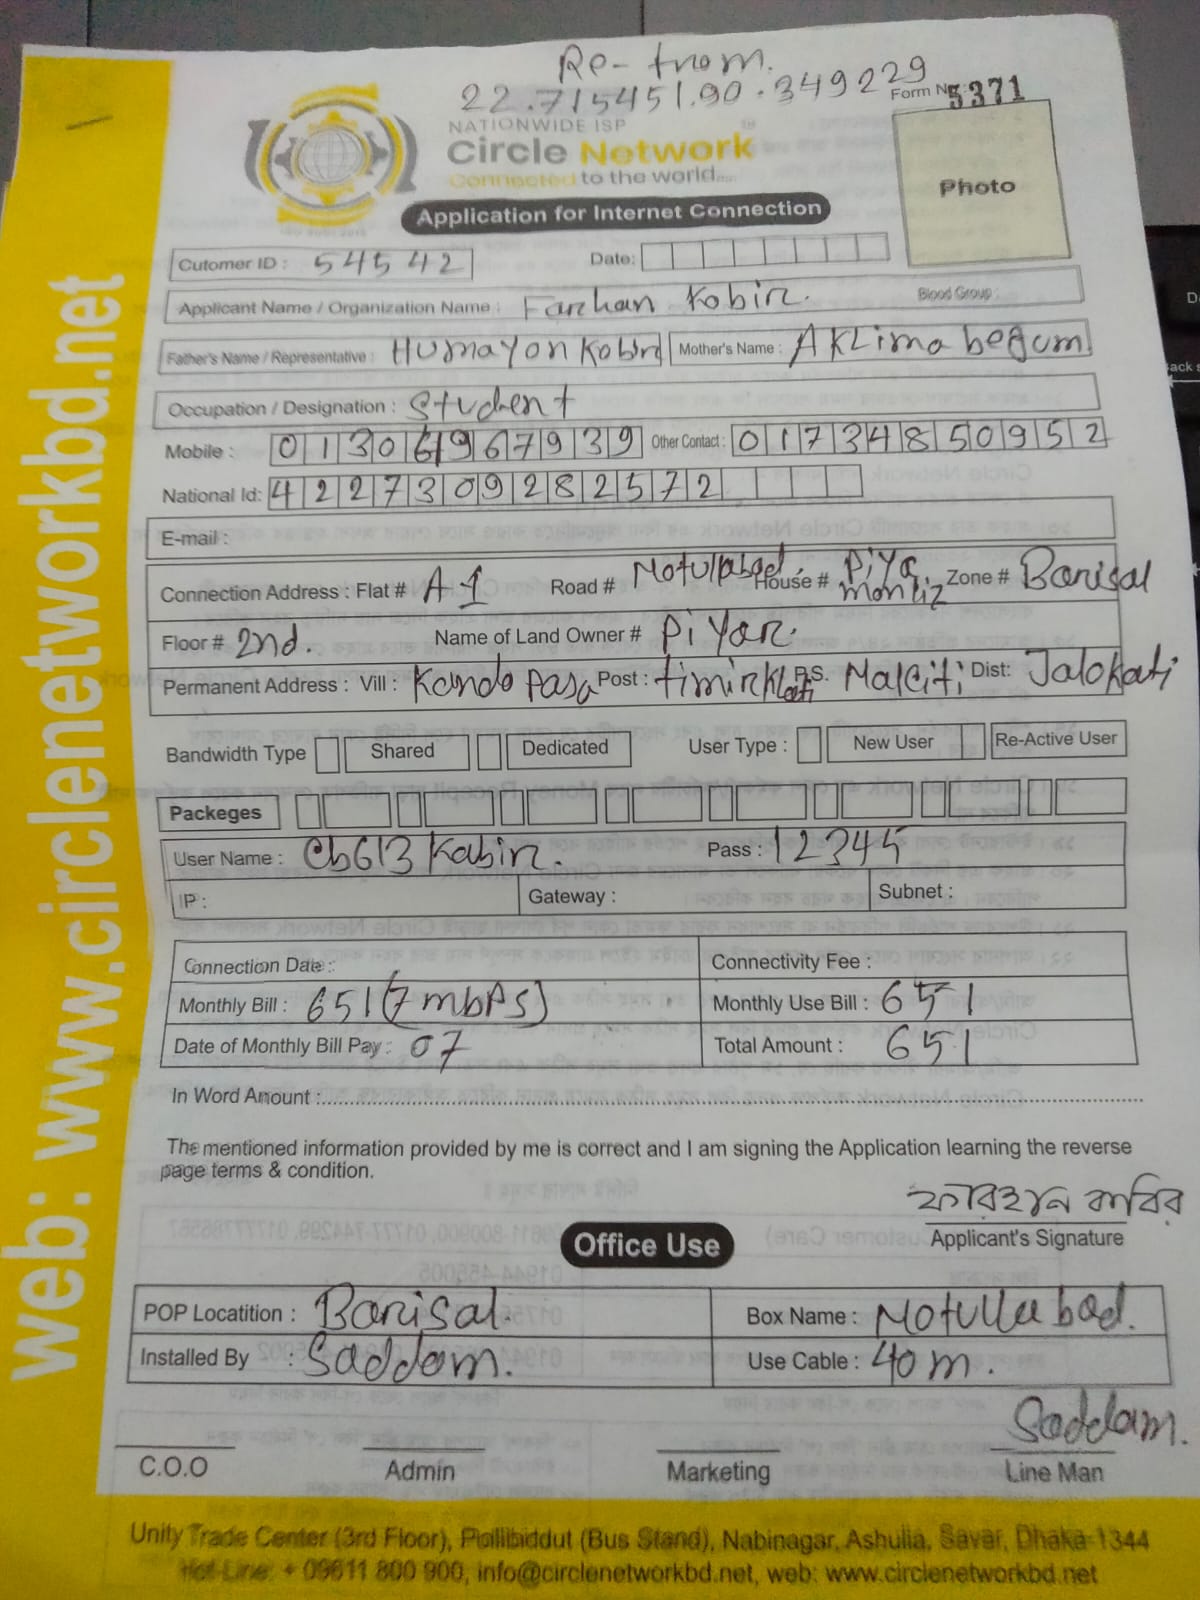 Re-from.
22.715451.90.349229
Form No 5371
NATIONWIDE ISP
Circle Network
Connected to the world.....
Photo
Application for Internet Connection
Cutomer ID : 54542 Date:
Applicant Name / Organization Name : Farhan Kobir. Blood Group :
Father's Name / Representative : Humayon Kobir Mother's Name : AKLima begum
Occupation / Designation : Student
Mobile : 01306967939 Other Contact : 01734850952
National Id: 4227309282572
E-mail :
Connection Address : Flat # A-1 Road # Notullabad House # Piya monjiz Zone # Barisal
Floor # 2nd. Name of Land Owner # Piyar.
Permanent Address : Vill : Kando pasa Post : timirkati P.S. Malciti Dist: Jalokati
Bandwidth Type Shared Dedicated User Type : New User Re-Active User
Packeges
User Name : Cb613 Kabir. Pass : 12345
IP : Gateway : Subnet :
Connection Date : Connectivity Fee :
Monthly Bill : 651 (7 mbps) Monthly Use Bill : 651
Date of Monthly Bill Pay : 07 Total Amount : 651
In Word Amount :
The mentioned information provided by me is correct and I am signing the Application learning the reverse
page terms & condition.
ফারহান কাবির
Applicant's Signature
Office Use
POP Locatition : Barisal. Box Name : Notullabad.
Installed By : Saddam. Use Cable : 40 m.
Saddam.
C.O.O Admin Marketing Line Man
Unity Trade Center (3rd Floor), Pollibiddut (Bus Stand), Nabinagar, Ashulia, Savar, Dhaka-1344
Hot-Line: + 09611 800 900, info@circlenetworkbd.net, web: www.circlenetworkbd.net
web: www.circlenetworkbd.net